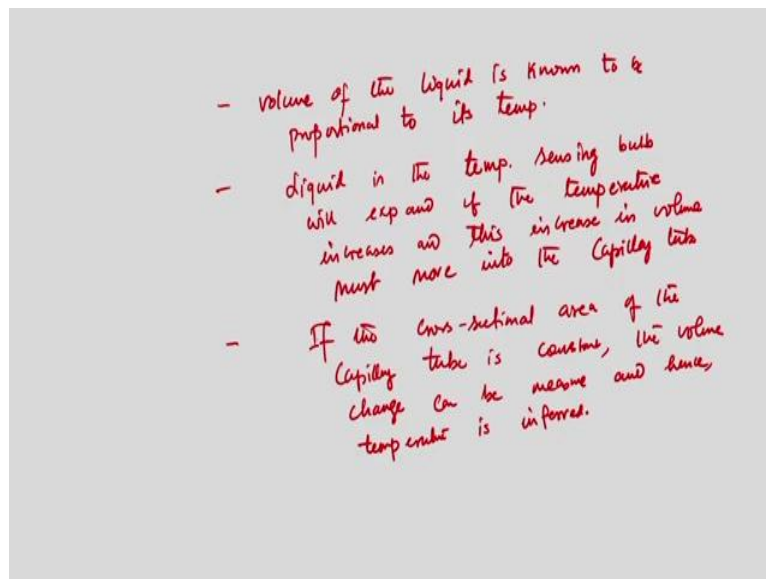 - volume of the liquid is known to be
proportional to its temp.
- Liquid in the temp. sensing bulb
will expand if the temperature
increases and this increase in volume
must move into the Capillary tube
- If the cross-sectional area of the
Capillary tube is constant, the volume
change can be measure and hence,
temperature is inferred.